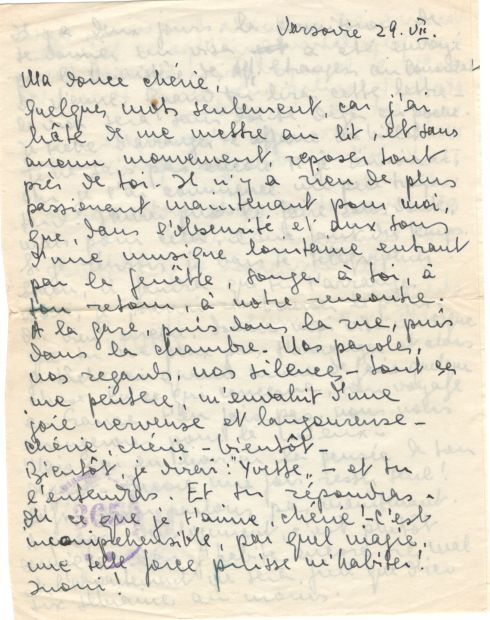 Varsovie 29. VII.
Ma douce chérie,
Quelques mots seulement, car j'ai
hâte de me mettre au lit, et sans
aucun mouvement, reposer tout
près de toi. Il n'y a rien de plus
passionant maintenant pour moi,
que, dans l'obscurité et aux sons
d'une musique lointaine entrant
par la fenêtre, songer à toi, à
ton retour, à notre rencontre.
A la gare, puis dans la rue, puis
dans la chambre. Nos paroles,
nos regards, nos silences – tout ça
me pénètre, m'envahit d'une
joie nerveuse et langoureuse –
chérie, chérie – bientôt –
Bientôt, je dirai: "Yvette" – et tu
l'entendras. Et tu répondras.
Oh ce que je t'aime, chérie! C'est
incompréhensible, par quel magie,
une telle force puisse m'habiter!